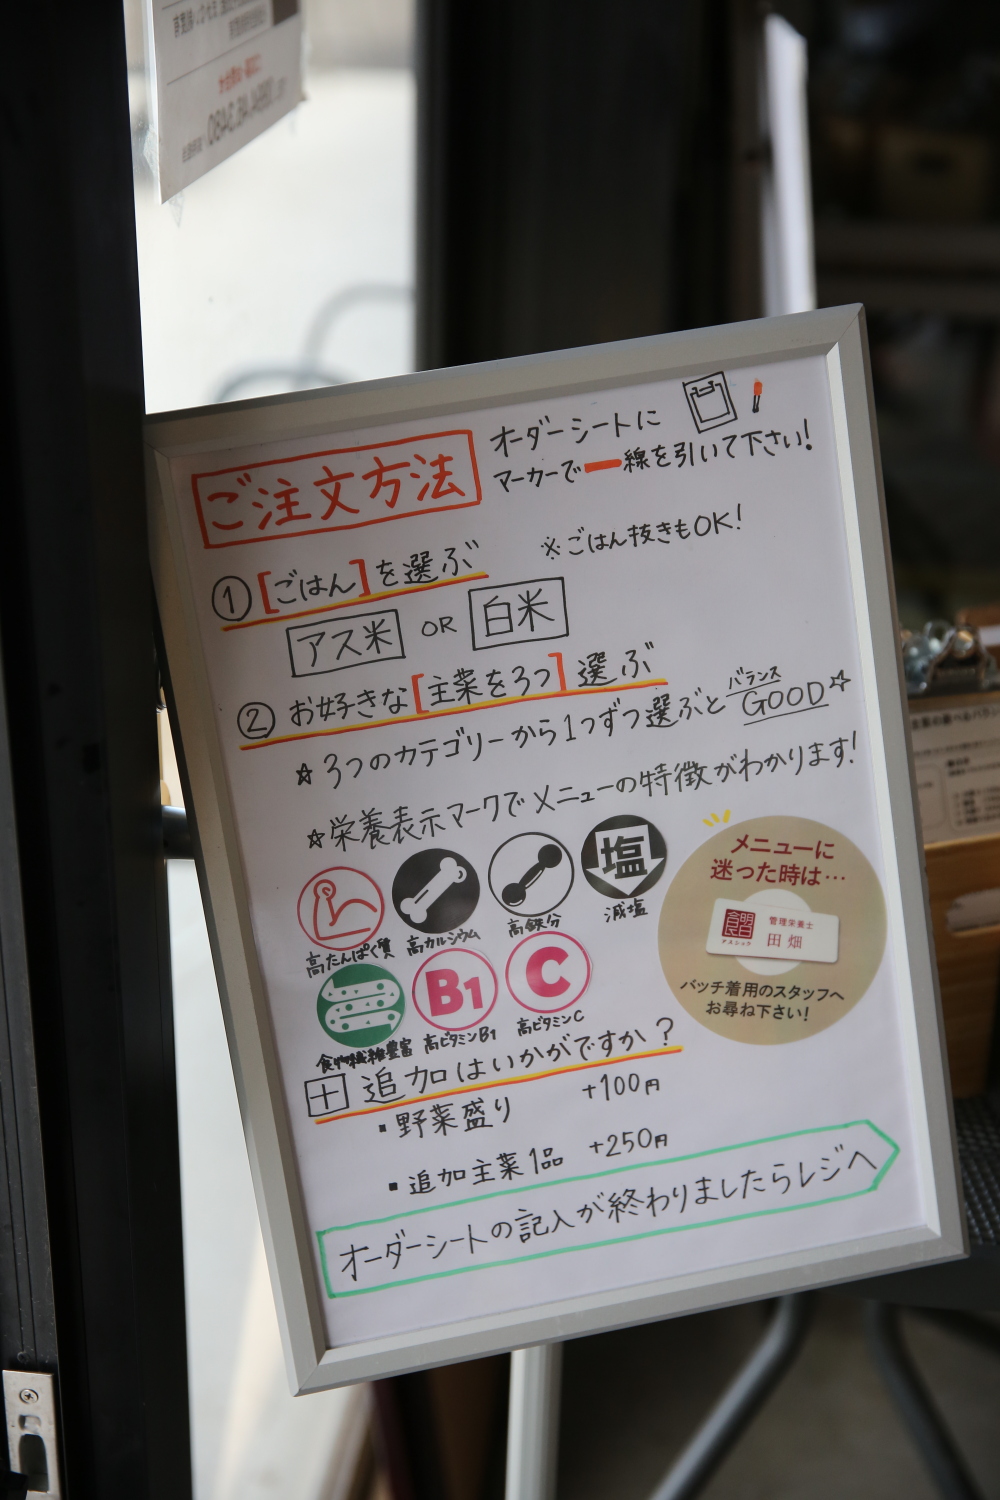 ご注文方法
オーダーシートに
マーカーで 線を引いて下さい!
①[ごはん]を選ぶ
※ごはん抜きもOK!
アス米 OR 白米
②お好きな[主菜を3つ]選ぶ
☆3つのカテゴリーから1つずつ選ぶとバランスGOOD☆
☆栄養表示マークでメニューの特徴がわかります!
塩
高たんぱく質
高カルシウム
高鉄分
減塩
B1
C
食物繊維豊富
高ビタミンB1
高ビタミンC
メニューに
迷った時は…
アスショク
管理栄養士
田畑
バッチ着用のスタッフへ
お尋ね下さい!
+ 追加はいかがですか?
▪野菜盛り +100円
▪追加主菜1品 +250円
オーダーシートの記入が終わりましたらレジへ